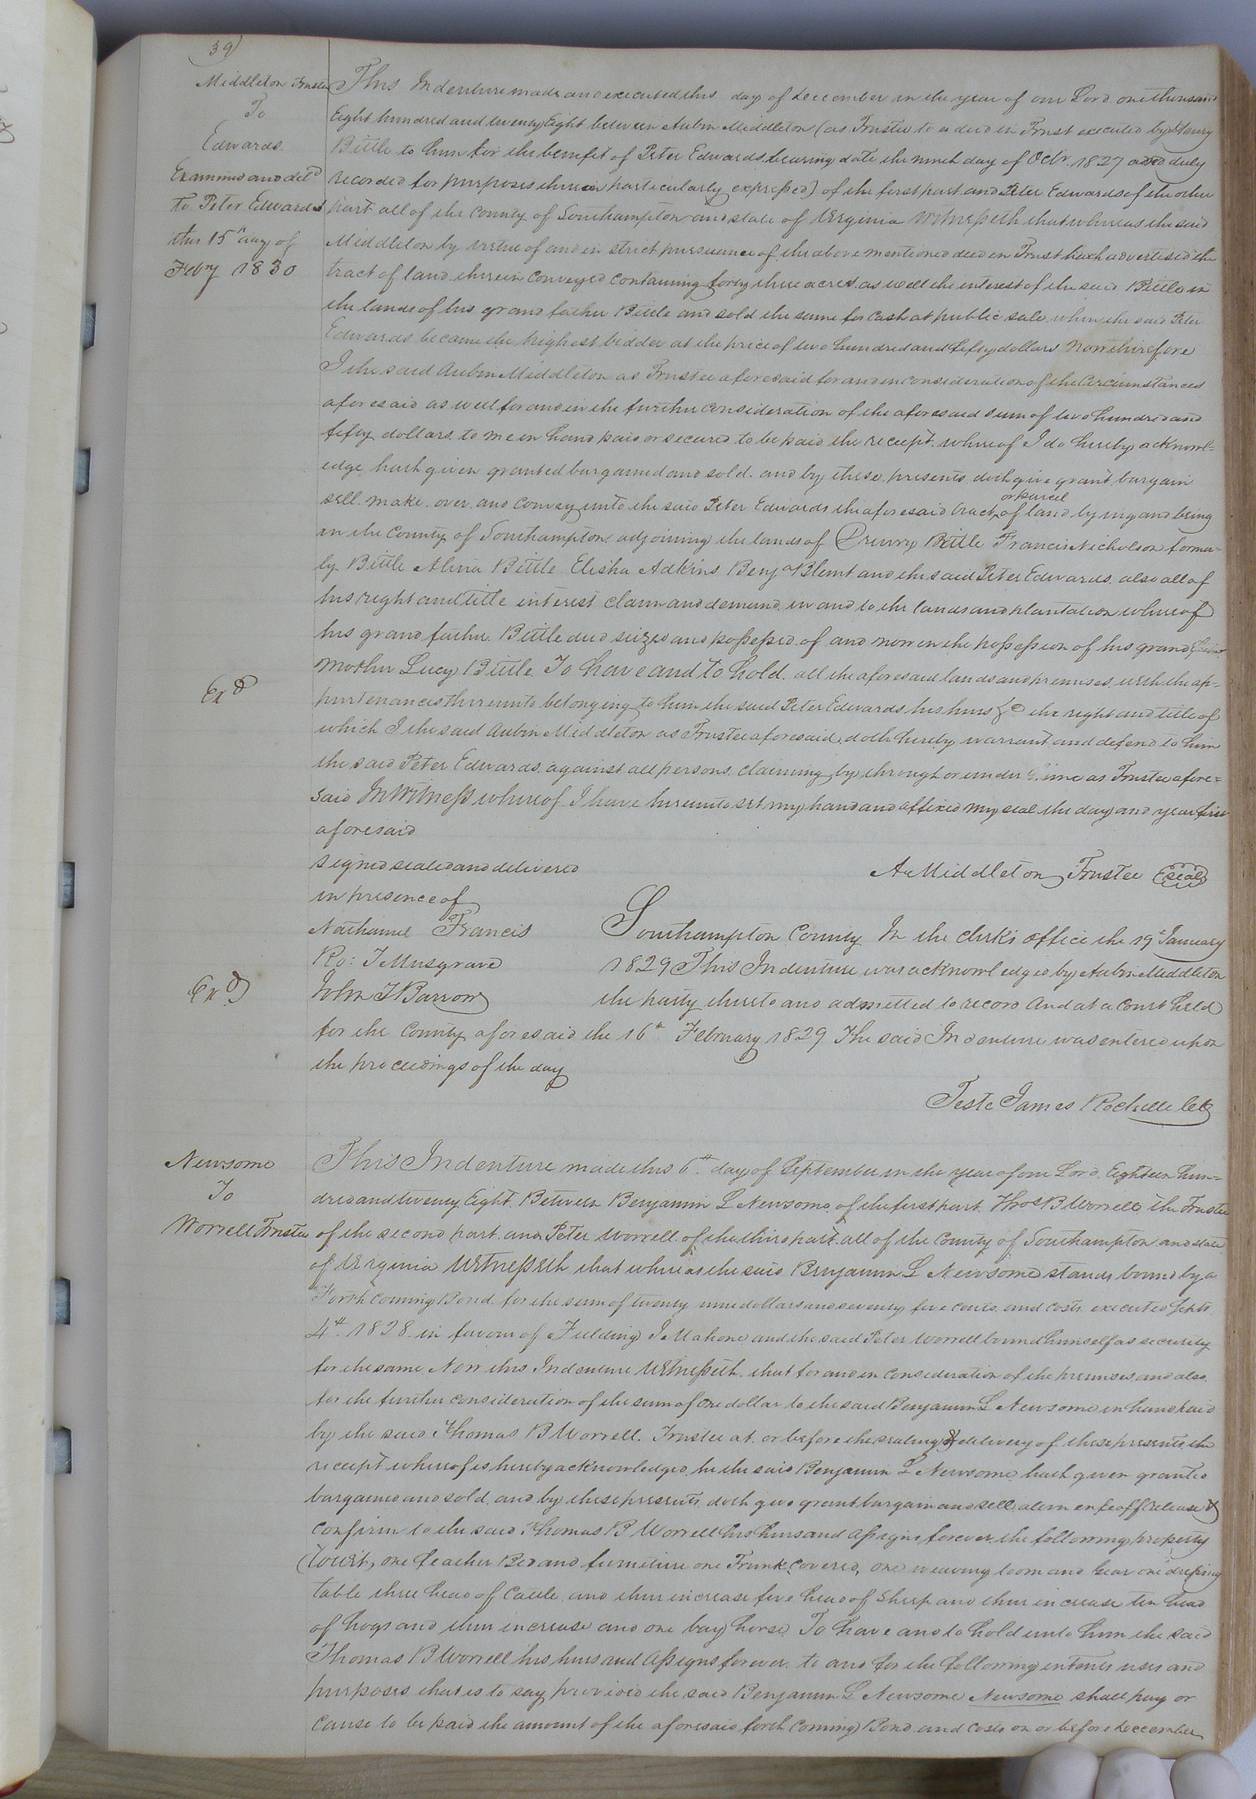 39)
Middleton Trustee
To
Edwards
Examined and deld
To Peter Edwards
this 15th day of
Feby 1830
This Indenture made and executed this day of December in the year of our Lord one thousand
Eight hundred and twenty Eight between Aubin Middleton (as Trustee to a deed in Trust executed by Henry
Bittle to him for the benefit of Peter Edwards bearing date the ninth day of Octr. 1827 and duly
recorded for purposes therein particularly expressed) of the first part and Peter Edwards of the other
part all of the County of Southampton and state of Virginia Witnesseth that whereas the said
Middleton by virtue of and in strict pursuence of the above mentioned deed in Trust hath advertised the
tract of land therein conveyed containing forty three acres as well the interest of the said Bittle in
the lands of his grand father Bittle and sold the same for Cash at public sale when the said Peter
Edwards became the highest bidder at the price of two hundred and fifty dollars Now therefore
I the said Aubin Middleton as Trustee aforesaid for and in consideration of the Circumstances
aforesaid as well for and in the further consideration of the aforesaid sum of two hundred and
fifty dollars to me in hand paid or secured to be paid the receipt whereof I do hereby acknowl=
edge hath given granted bargained and sold and by these presents doth give grant bargain
sell make over and convey unto the said Peter Edwards the aforesaid tract or parcel of land lying and being
in the County of Southampton adjoining the lands of Drewry Bittle Francis Nicholson forma-
ly Bittle Alivia Bittle Elisha Adkins Benja Blunt and the said Peter Edwards also all of
his right and title interest claim and demand in and to the lands and plantation whereof
his grand father Bittle died seized and possessed of and now in the possession of his grand
mother Lucy Bittle To have and to hold all the aforesaid lands and premises with the ap-
Exd
purtenances thereunto belonging to him the said Peter Edwards his heirs &c the right and title of
which I the said Aubin Middleton as Trustee aforesaid doth hereby warrant and defend to him
the said Peter Edwards against all persons claiming by through or under me as Trustee afore=
said In Witness whereof I have hereunto set my hand and affixed my seal the day and year first
aforesaid
Signed sealed and delivered
A Middleton Trustee (seal)
in presence of
Nathaniel Francis
Ro: T Musgrave
John T Barrow
Exd
Southampton County In the Clerk's office the 19th January
1829 This Indenture was acknowledged by Aubin Middleton
the party thereto and admitted to record And at a Court held
for the County aforesaid the 16th February 1829 The said Indenture was entered upon
the proceedings of the day
Teste James Rochelle Clk
Newsome
To
Worrell Trustee
This Indenture made this 6th day of September in the year of our Lord Eighteen hun=
dred and twenty Eight Between Benjamin L Newsome of the first part Thos B Worrell the Trustee
of the second part and Peter Worrell of the third part all of the County of Southampton and state
of Virginia Witnesseth that whereas the said Benjamin L Newsome stands bound by a
Forth coming Bond for the sum of twenty nine dollars and seventy five cents and costs executed Septr
4th 1828 in favour of Fielding J Mahone and the said Peter Worrell bound himself as security
for the same Now this Indenture Witnesseth that for and in consideration of the premises and also
for the further consideration of the sum of one dollar to the said Benjamin L Newsome in hand paid
by the said Thomas B Worrell Trustee at or before the sealing & delivery of these presents the
receipt whereof is hereby acknowledged he the said Benjamin L Newsome hath given granted
bargained and sold and by these presents doth give grant bargain and sell alien enfeoff release &
confirm to the said Thomas B Worrell his heirs and assigns forever the following property
(towit, one feather Bed and furniture one Trunk covered, one weaving loom and Gear one dressing
table three head of Cattle and their increase five head of Sheep and their increase ten head
of hogs and their increase and one bay horse To have and to hold unto him the said
Thomas B Worrell his heirs and assigns forever to and for the following intents uses and
purposes that is to say provided the said Benjamin L Newsome Newsome shall pay or
cause to be paid the amount of the aforesaid forth coming Bond and costs on or before December